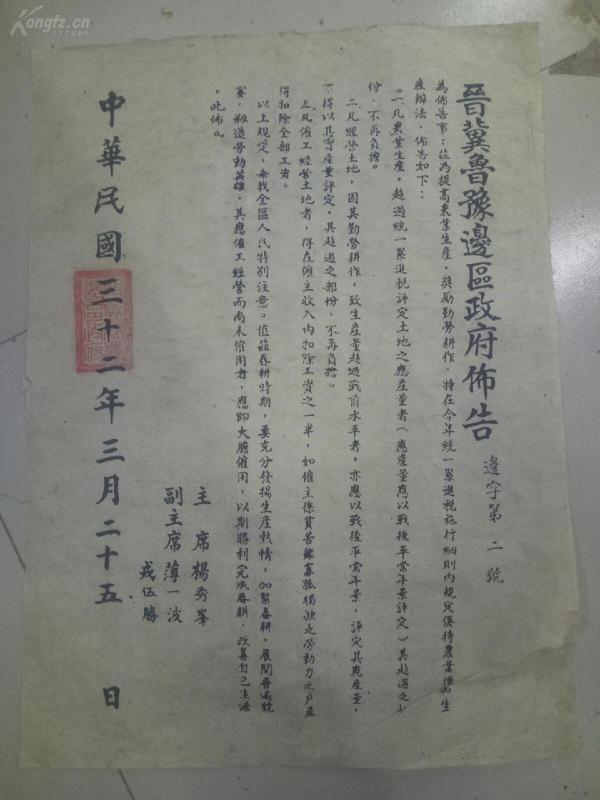 晉冀魯豫邊區政府佈告
邊字第二號
為佈告事：茲為提高農業生產，獎勵勤勞耕作，特在今年統一累進稅施行細則內規定優待農業增生
產辦法，佈告如下：
一、凡農業生產，超過統一累進稅評定土地之應產量者（應產量應以戰後平常年景評定）其超過之部
份，不再負擔。
二、凡經營土地，因其勤勞耕作，致生產量超過戰前水平者，亦應以戰後平常年景，評定其應產量，
不得以其實產量評定，其超過之部份，不再負擔。
三、凡僱工經營土地者，得在僱主收入內扣除工資之一半，如僱主係貧苦鰥寡孤獨缺乏勞動力之戶並
得扣除全部工資。
以上規定，希我全區人民特別注意。值茲春耕時期，要充分發揚生產熱情，加緊春耕，展開普遍競
賽，報道勞動英雄，其應僱工經營而尚未僱用者，應即大膽僱用，以期勝利完成春耕，改善自己生活
。此佈。
主席 楊秀峯
副主席 薄一波
戎伍勝
中華民國三十二年三月二十五日
Kongfz.cn